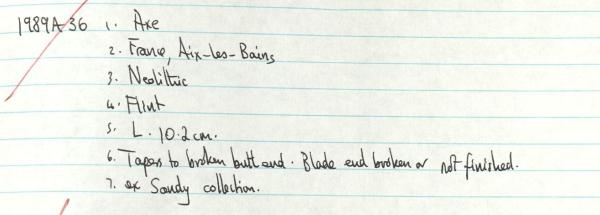 1989A 36 1. Axe
2. France, Aix-les-Bains
3. Neolithic
4. Flint
5. L. 10.2cm.
6. Tapers to broken butt end. Blade end broken or not finished.
7. ex Sandy collection.